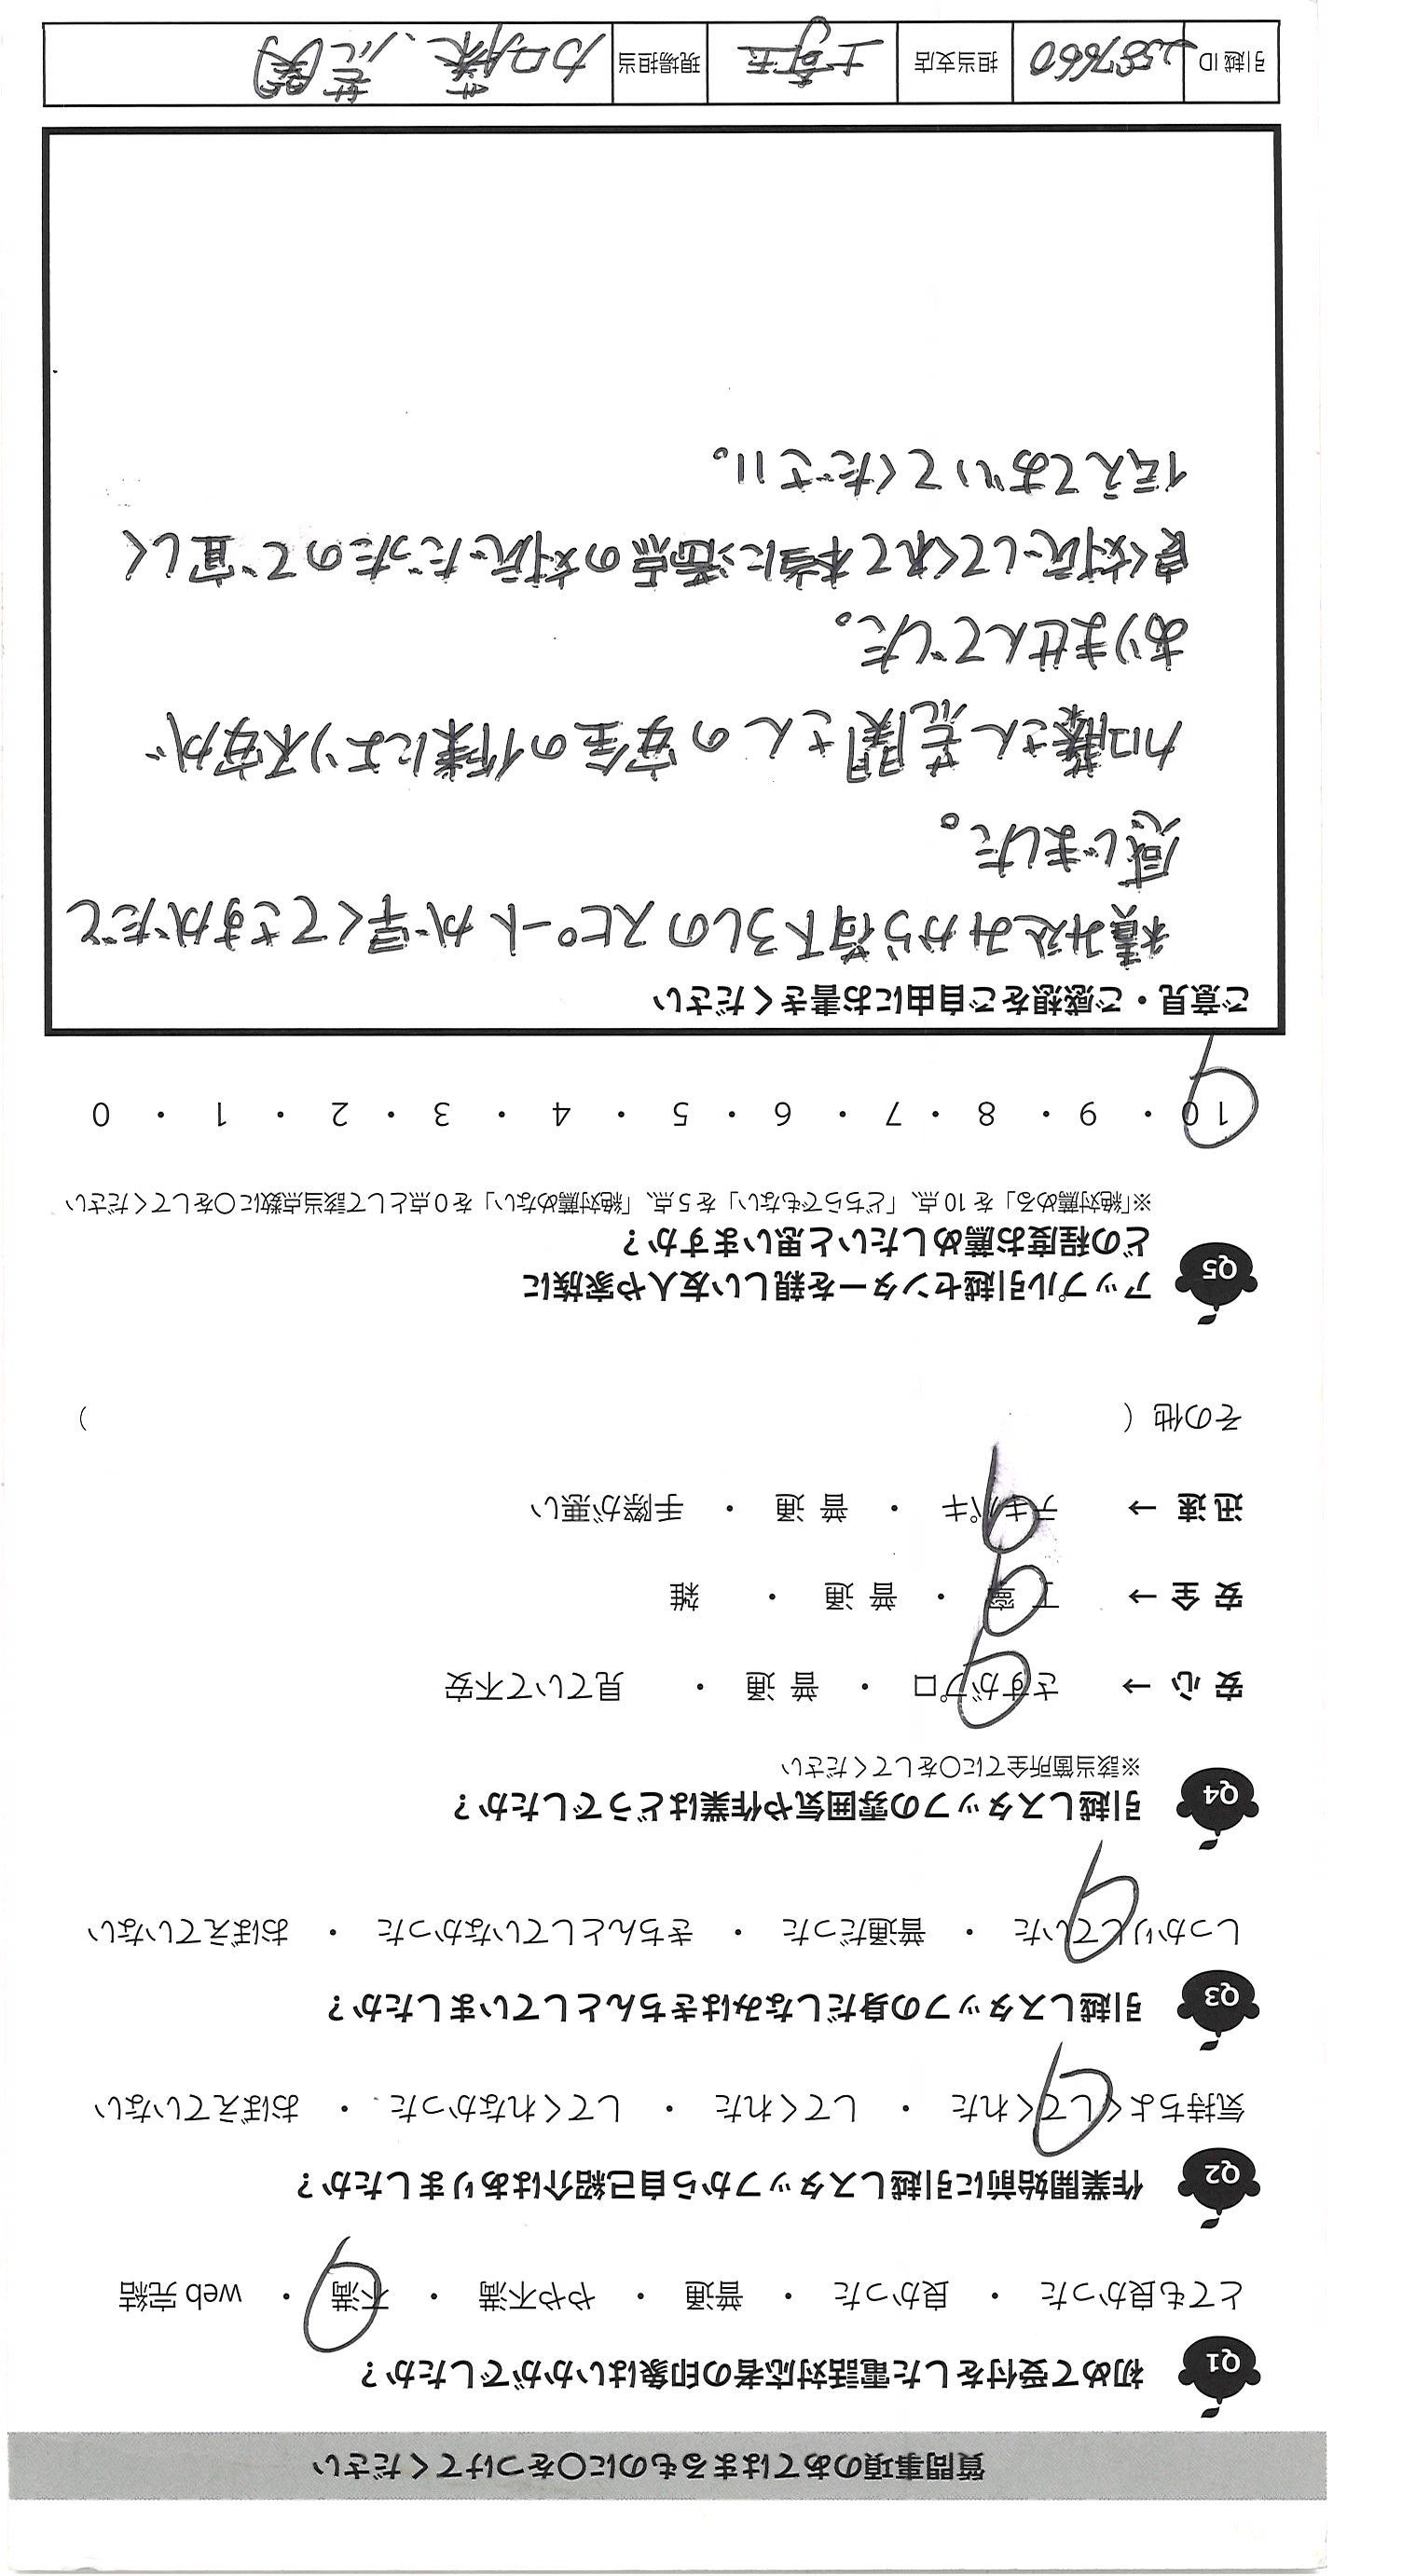 質問事項のあてはまるものに○をつけてください
Q1 初めて受付をした電話対応者の印象はいかがでしたか？
とても良かった ・ 良かった ・ 普通 ・ やや不満 ・ 不満 ・ web 完結
Q2 作業開始前に引越しスタッフから自己紹介はありましたか？
気持ちよくしてくれた ・ してくれた ・ してくれなかった ・ おぼえていない
Q3 引越しスタッフの身だしなみはきちんとしていましたか？
しっかりしていた ・ 普通だった ・ きちんとしていなかった ・ おぼえていない
Q4 引越しスタッフの雰囲気や作業はどうでしたか？
※該当箇所全てに○をしてください
安 心 → さすがプロ ・ 普 通 ・ 見ていて不安
安 全 → 丁 寧 ・ 普 通 ・ 雑
迅 速 → テキパキ ・ 普 通 ・ 手際が悪い
その他（ ）
Q5 アップル引越センターを親しい友人や家族に
どの程度お薦めしたいと思いますか？
※「絶対薦める」を 10 点、「どちらでもない」を 5 点、「絶対薦めない」を 0 点として該当点数に○をしてください
10 ・ 9 ・ 8 ・ 7 ・ 6 ・ 5 ・ 4 ・ 3 ・ 2 ・ 1 ・ 0
ご意見・ご感想をご自由にお書きください
積み込みから荷下ろしのスピートが早くてさすがだと
感じました。
加藤さん荒関さんの安全の作業により不安が
ありませんでした。
良く対応してくれて本当に満点の対応だったので宜しく
伝えておいてください。
引越 ID 担当支店 埼玉 現場担当 加藤、荒関